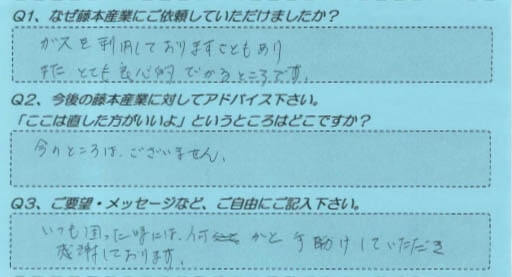 Q1、なぜ藤本産業にご依頼していただけましたか?
ガスを利用しておりますこともあり
また、とても良心的であるところです。
Q2、今後の藤本産業に対してアドバイス下さい。
「ここは直した方がいいよ」というところはどこですか?
今のところは、ございません。
Q3、ご要望・メッセージなど、ご自由にご記入下さい。
いつも困った時には、何かと手助けしていただき
感謝しております。